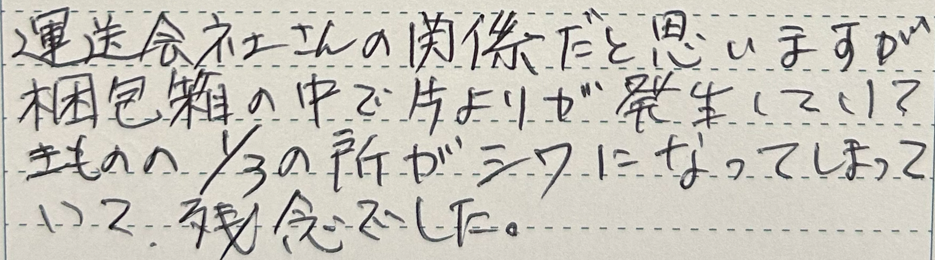 運送会社さんの関係だと思いますが
梱包箱の中で片よりが発生していて
きものの1/3の所がシワになってしまって
いて、残念でした。